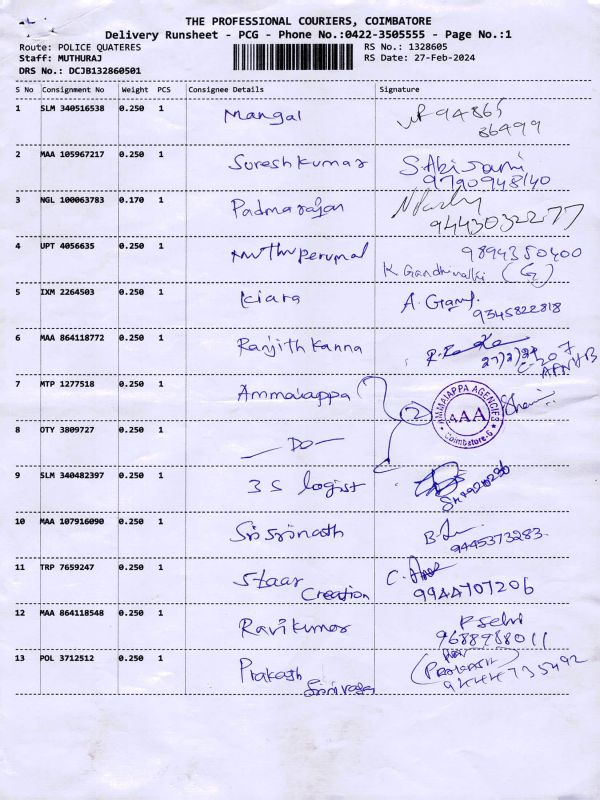 THE PROFESSIONAL COURIERS, COIMBATORE
Delivery Runsheet - PCG - Phone No.:0422-3505555 - Page No.:1
Route: POLICE QUATERES RS No.: 1328605
Staff: MUTHURAJ RS Date: 27-Feb-2024
DRS No.: DCJB132860501
S No Consignment No Weight PCS Consignee Details Signature
1 SLM 340516538 0.250 1 Mangal 94865
86499
2 MAA 105967217 0.250 1 Suresh Kumar S.Akisami
9790948140
3 NGL 100063783 0.170 1 Padmarajan
9443032277
4 UPT 4056635 0.250 1 Muthu perumal 9894350400
K Gandhimathi
5 IXM 2264503 0.250 1 Kiara A.
9345822818
6 MAA 864118772 0.250 1 Ranjith Kanna
27/2/24
C-207
7 MTP 1277518 0.250 1 Ammaiappa 2
AMMAIAPPA AGENCIES
AAA
Coimbatore-6
8 OTY 3809727 0.250 1 —DO—
9 SLM 340482397 0.250 1 3 S logist
10 MAA 107916090 0.250 1 Sri Srinath B.
9445373283.
11 TRP 7659247 0.250 1 Staar C.
Creation 9944707206
12 MAA 864118548 0.250 1 Ravikumar P Selvi
9688988011
13 POL 3712512 0.250 1 Prakash (Prakash)
9444735492